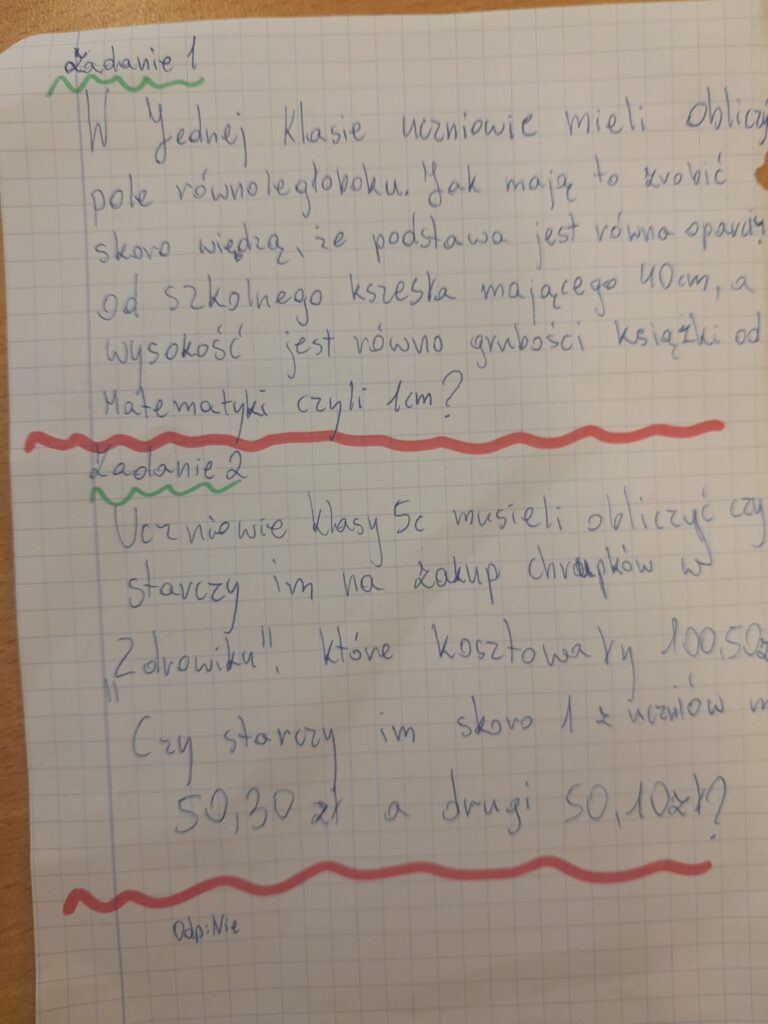 Zadanie 1
W Jednej klasie uczniowie mieli obliczy
pole równoległoboku. Jak mają to zrobić
skoro wiedzą, że podstawa jest równa oparciu
od szkolnego kszesła mającego 40cm, a
wysokość jest równo grubości książki od
Matematyki czyli 1cm?
Zadanie 2
Uczniowie klasy 5c musieli obliczyć czy
starczy im na zakup chrupków w
"Zdrowiku". które kosztowały 100,50z
Czy starczy im skoro 1 z uczniów m
50,30 zł a drugi 50,10zł?
Odp: Nie